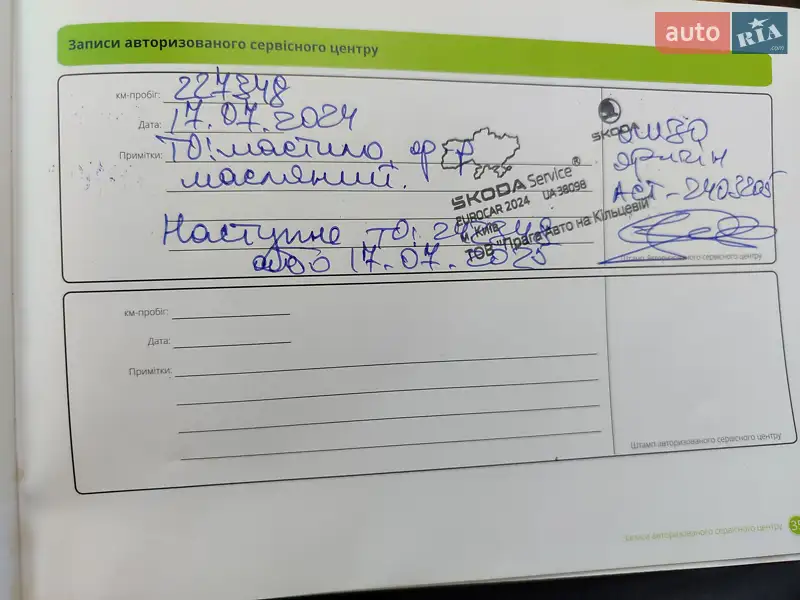 auto RIA .com
Записи авторизованого сервісного центру
км-пробіг: 227348
Дата: 17.07.2024
Примітки: ТО: мастило, ф-р
масляний.
Наступне ТО:
або 17.07.2025
SKODA Service®
EUROCAR 2024 UA 38098
м. Київ
ТОВ "Прага Авто на Кільцевій"
SKODA
АСТ-2403205
Штамп авторизованого сервісного центру
км-пробіг:
Дата:
Примітки:
Штамп авторизованого сервісного центру
записи авторизованого сервісного центру